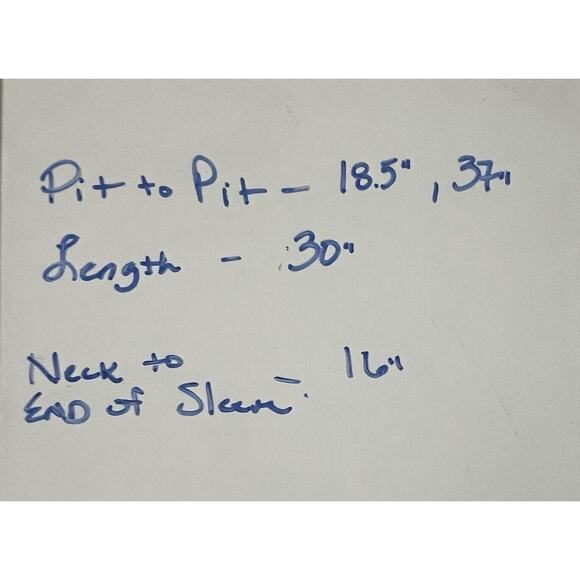 Pit to Pit - 18.5", 37"
Length - 30"
Neck to
END of Sleeve - 16"